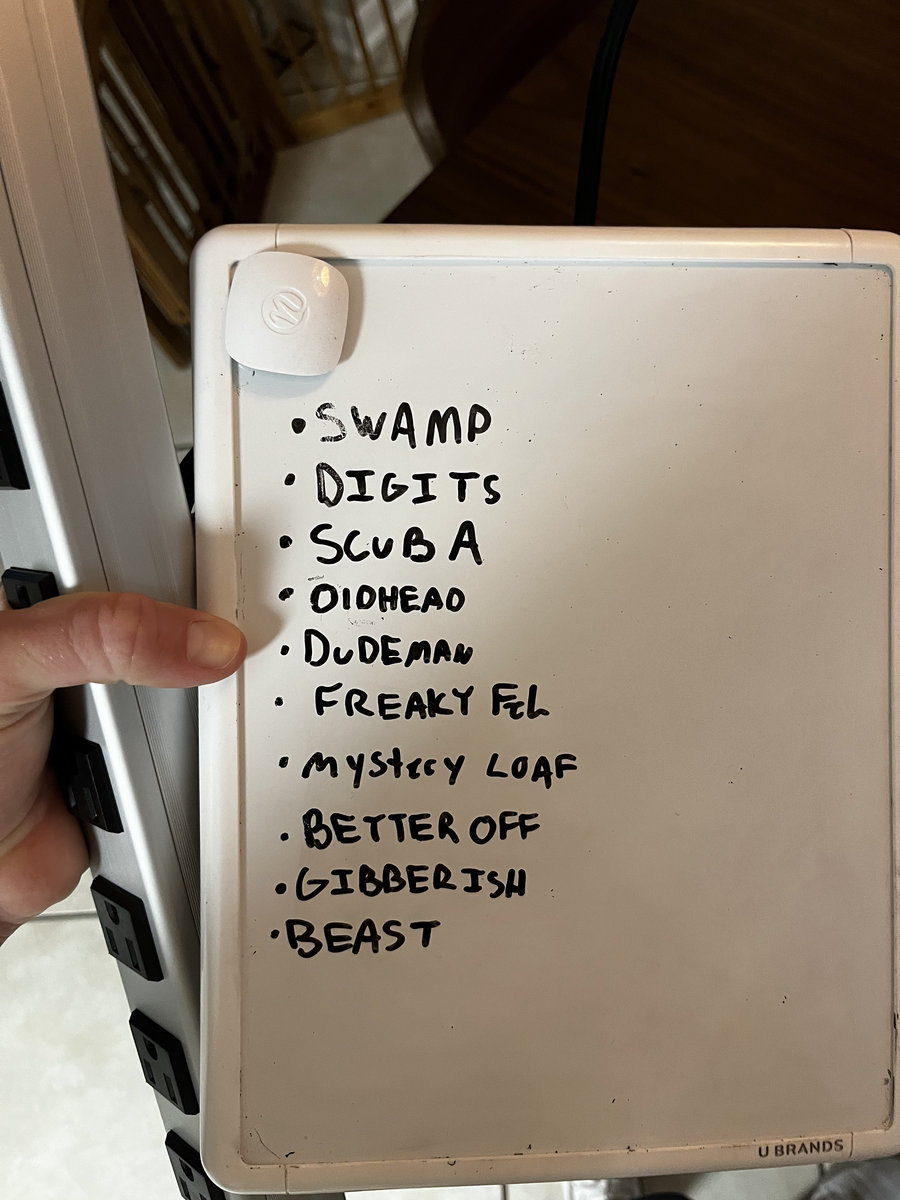 • SWAMP
• DIGITS
• SCUBA
• OIDHEAD
• DUDEMAN
• FREAKY
• MYSterY LOAF
• BETTER OFF
• GIBBERISH
• BEAST
U BRANDS